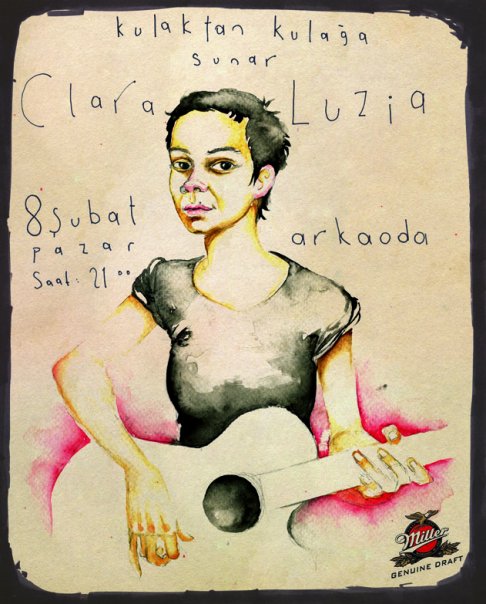 kulaktan kulağa
sunar
Clara Luzia
8 Şubat
pazar
Saat: 21 00
arkaoda
Miller
GENUINE DRAFT